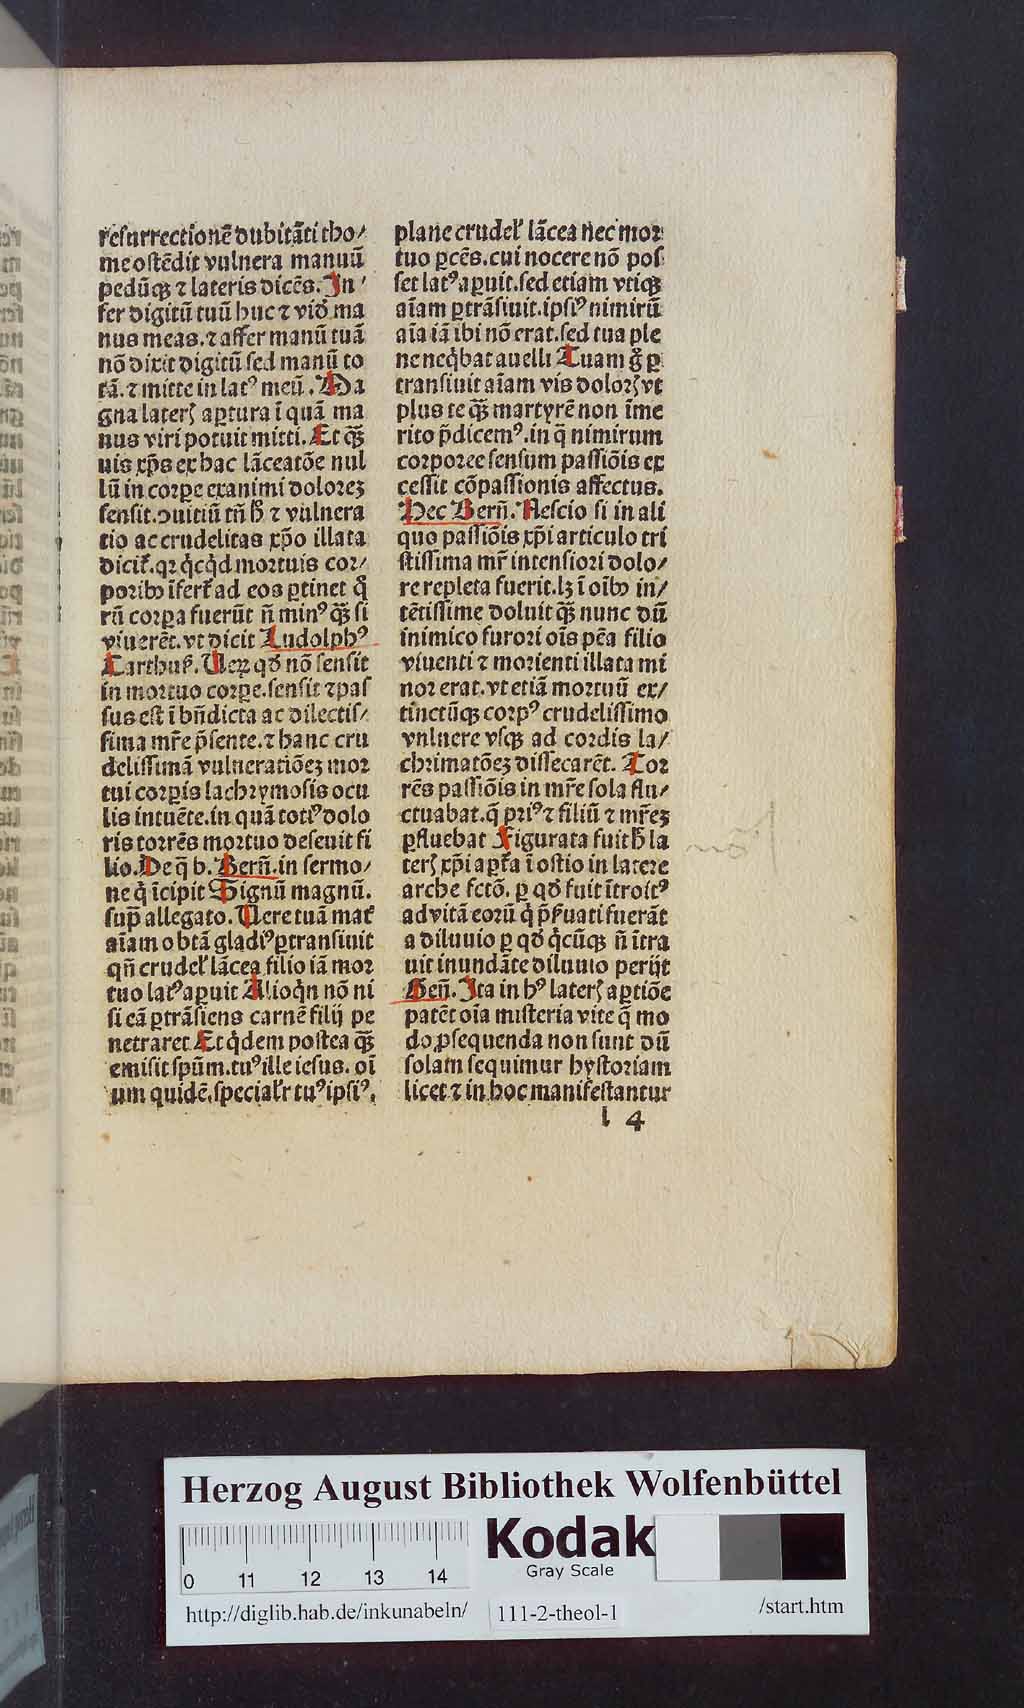 resurrectionē dubitāti tho/
me ostēdit vulnera manuū
pedūqꝫ ⁊ lateris dicēs. In
fer digitū tuū huc ⁊ vid̓ ma
nus meas. ⁊ affer manū tuā
nō dixit digitū sed manū to
tā. ⁊ mitte in latꝰ meū. Ma
gna laterꝭ aꝑtura ī quā ma
nus viri potuit mitti. Et qꝫ̄
uis xp̄s ex hac lāceatōe nul
lū in corꝑe exanimi dolorez
sensit. ɔuitiū tn̄ h̄ ⁊ vulnera
tio ac crudelitas xp̄o illata
dicit᷑. qꝛ q̇cq̇d mortuis cor/
poribꝰ īfert᷑ ad eos ꝑtinet q̇
rū corpa fuerūt n̄ minꝰ qꝫ̄ si
viuerēt. vt dicit Ludolphꝰ
Carthus̓. Ueꝝ qd̓ nō sensit
in mortuo corꝑe. sensit ⁊ pas
sus est ī bn̄dicta ac dilectis/
sima mr̄e p̄sente. ⁊ hanc cru
delissimā vulneratiōez mor
tui corꝑis lachrymosis ocu
lis intuēte. in quā totꝰ dolo
ris torrēs mortuo deseuit fi
lio. De q̄ b. Bern̄. in sermo/
ne q̇ īcipit Signū magnū.
sup̄ allegato. Uere tuā mat᷑
aīam o btā gladiꝰ ꝑtransiuit
qn̄ crudel̓ lācea filio iā mor
tuo latꝰ aꝑuit Alioq̇n nō ni
si eā ꝑtrāsiens carnē filij pe
netraret Et q̇dem postea qꝫ̄
emisit spūm. tuꝰ ille iesus. oī
um quidē. specialr̓ tuꝰ ipsiꝰ.
plane crudel̓ lācea nec mor
tuo ꝑcēs. cui nocere nō pos
set latꝰ aꝑuit. sed etiam vtiqꝫ
aīam ꝑtrāsiuit. ipsiꝰ nimirū
aīa iā ibi nō erat. sed tua ple
ne neq̇bat auelli Tuam g̊ ꝑ
transiuit aīam vis dolorꝭ vt
plus te qꝫ̄ martyrē non īme
rito p̄dicemꝰ. in q̄ nimirum
corporee sensum passiōis ex
cessit cōpassionis affectus.
Hec Bern̄. Nescio si in ali
quo passiōis xp̄i articulo tri
stissima mr̄ intensiori dolo/
re repleta fuerit. lꝫ ī oībꝰ in/
tētissime doluit qꝫ̄ nunc dū
inimico furori oīs pēa filio
viuenti ⁊ morienti illata mi
nor erat. vt etiā mortuū ex/
tinctūqꝫ corpꝰ crudelissimo
vnlnere vsqꝫ ad cordis la/
chrimatōez dissecarēt. Tor
rēs passiōis in mr̄e sola flu/
ctuabat. q̄ priꝰ ⁊ filiū ⁊ mr̄ez
ꝑfluebat Figurata fuit h̄ la
terꝭ xp̄i aꝑt᷑a ī ostio in latere
arche fctō. ꝑ qd̓ fuit ītroitꝰ
ad vitā eorū q̇ p̄s̓uati fuerāt
a diluuio ꝑ qd̓ q̇cūqꝫ n̄ ītra
uit inundāte diluuio perijt
Ben̄. Ita in hꝰ laterꝭ aꝑtiōe
patēt oīa misteria vite q̄ mo
do ꝓsequenda non sunt dū
solam sequimur hystoriam
licet ⁊ in hoc manifestantur
l 4
Herzog August Bibliothek Wolfenbüttel
0 11 12 13 14
Kodak
Gray Scale
http://diglib.hab.de/inkunabeln/ 111-2-theol-1 /start.htm